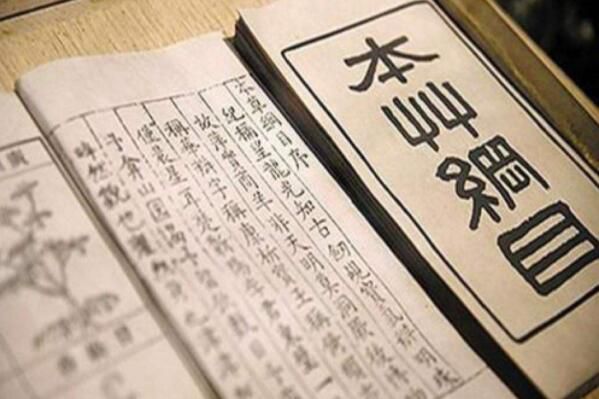 本艸綱目
本草綱目序
紀稱望龍光知古劍覘寶氣辨明珠
故萍實商羊非天明莫洞厥後博
稱華辨字稱康析寶玉稱倚頓
僅晨星耳楚蘄陽李君東璧一
予弇山園謁予留飲數日予
睟然貌也癯然身也